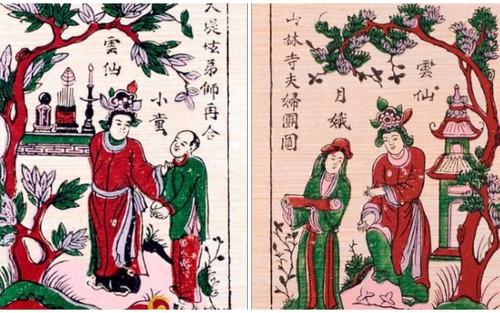 弟師再合
小童
雲仙
雲仙
月娥
山林寺夫婦團圓